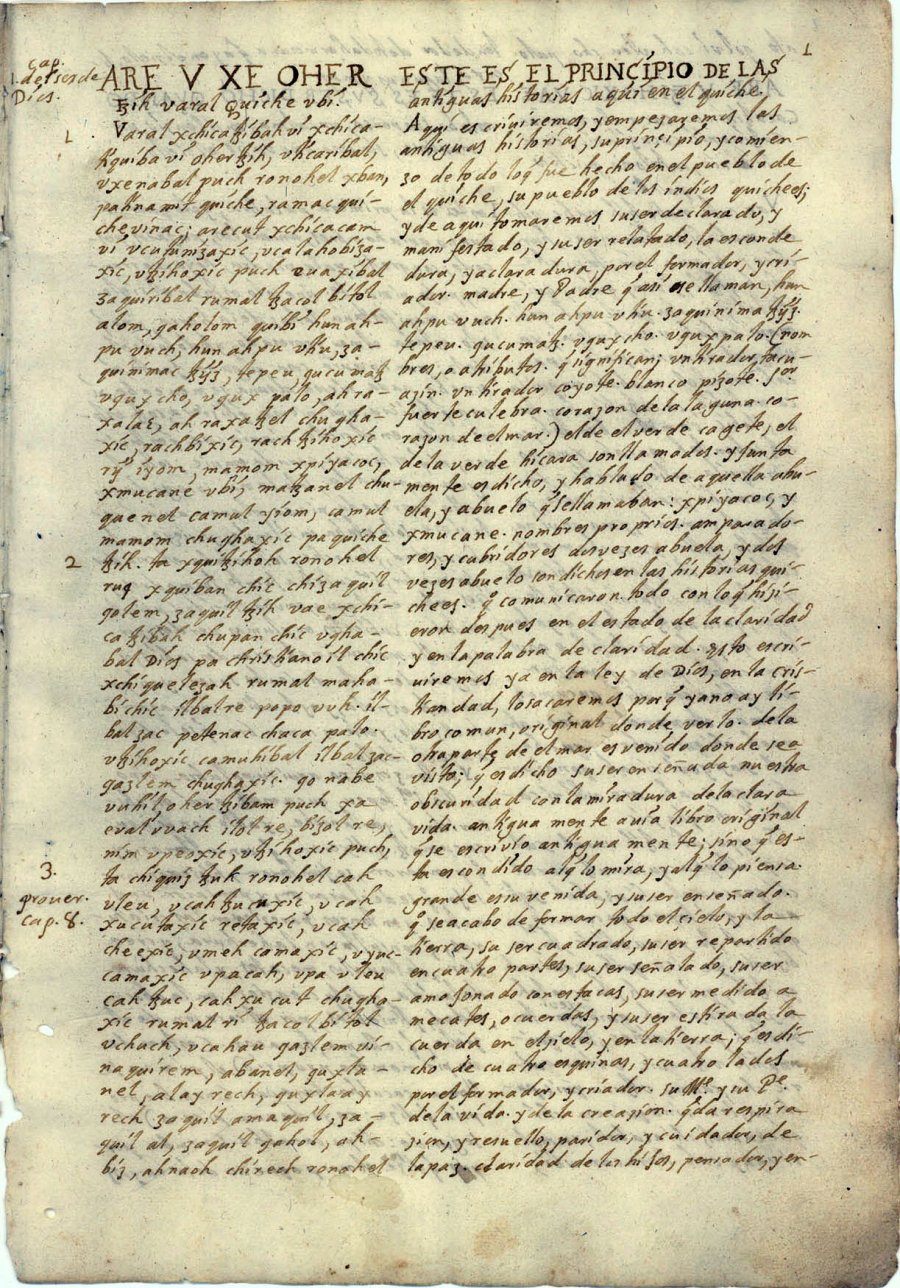 1. cap.
de ser de
Dios.
1
ARE V XE OHER
ꜩih varal Quiche vbi.
1. Varal xchicaꜩibah vi xchica-
tiquiba vi oher ꜩih, vticaribal,
vxenabal puch ronohel xban,
pa tinamit quiche, ramac qui-
chevinac; arecut xchicacam
vi vcutunizaxic, vcalahobiza-
xic, vꜩihoxic puch euaxibal
zaquiribal rumal ꜩacol bitol
alom, qaholom quibi hun ah-
pu vuch, hun ahpu vtiu, za-
quinimac ꜩyz, tepeu qucumatz
vqux cho, vqux palo, ah ra-
xa lac, ah raxa ꜩel chugha-
xic, rachbixic, rach ꜩihoxic
ri iyom, mamom xpiyacoc,
xmucane vbi, maꜩanel chu-
quenel camul yiom, camul
mamom chughaxic pa quiche
2 ꜩih. ta xquiꜩihoh ronohel
ruq xquiban chic chi zaquil
qolem, zaquil ꜩih vae xchi-
caꜩibah chupan chic vgha-
bal Dios pa christianoil chic
xchiquelezah rumal maha-
bi chic ilbal re popo vuh. il-
bal zac petenac chaca palo.
vꜩihoxic camuhibal ilbal zac-
qazlem chughaxic. qo nabe
vuhil, oher ꜩibam puch xa
eval vvach ilol re, bizol re,
nim vpeoxic, vꜩihoxic puch,
3. ta chiquiz ꜩuk ronohel cah
prouer.
cap. 8.
vleu, vcah ꜩucuxic, vcah
xucutaxic retaxic, vcah
cheexic, vmeh camaxic, vyuc-
camaxic vpa cah, vpa vleu
cah ꜩuc, cah xucut chugha-
xic rumal ri ꜩacol bitol
vchuch, vcahau qazlem vi-
naquirem, abanel, quxla-
nel, alay rech, quxlaay
rech zaquil amaquil, za-
quil al, zaquil qahol, ah-
biz, ahnaoh chirech ronohel
ESTE ES EL PRINCIPIO DE LAS
antiguas historias aqui en el quiche.
Aqui escriviremos, y empezaremos las
antiguas historias, su principio, y comien-
zo de todo lo q̃ fue hecho en el pueblo de
el quiche, su pueblo de los indios quichees;
y de aqui tomaremos su ser declarado, y
manifestado, y su ser relatado, la esconde
dura, y aclaradura, por el formador, y cri-
ador. madre, y Padre q̃ asi se llaman, hun
ahpu vuch. hun ahpu vtiu. zaquinima ꜩyz.
tepeu. qucumatz. vqux cho. vqux palo. (nom
bres, o atributos. q̃ significan; vn tirador, tacu-
azin. vn tirador coyote. blanco pizote. Sor
fuerte culebra. corazon de la laguna. co-
razon de el mar.) el de el verde cagete, el
de la verde hicara son llamados. y junta
mente es dicho, y hablado de aquella abu-
ela, y abuelo q̃ se llamaban: xpiyacoc, y
xmucane. nombres proprios. amparado-
res, y cubridores dos vezes abuela, y dos
vezes abuelo son dichos en las historias qui-
chees. q̃ comunicaron. todo con lo q̃ hizi-
eron despues en el estado de la claridad
y en la palabra de claridad. Esto escri-
uiremos ya en la ley de Dios, en la cris-
tiandad, lo sacaremos porq̃ ya no ay li-
bro comun, original donde verlo. de la
otra parte de el mar es venido donde se a
visto; q̃ es dicho su ser enseñada nuestra
obscuridad con la miradura de la clara
vida. antigua mente auia libro original
q̃ se escrivio antigua mente; sino q̃ es-
ta escondido al q̃ lo mira, y al q̃ lo piensa.
grande es su venida, y su ser enseñado.
q̃ se acabo de formar todo el çielo, y la
tierra, su ser cuadrado, su ser repartido
en cuatro partes, su ser señalado, su ser
amojonado con estacas, su ser medido a
mecates, o cuerdas, y su ser estirada la
cuerda en el zielo, y en la tierra; q̃ es di-
cho de cuatro esquinas, y cuatro lados
por el formador, y criador. su Me. y su Pe.
de la vida. y de la creazion. q̃ da respira
zion, y resuello, paridor, y cuidador, de
la paz. claridad de los hijos, pensador, y en-